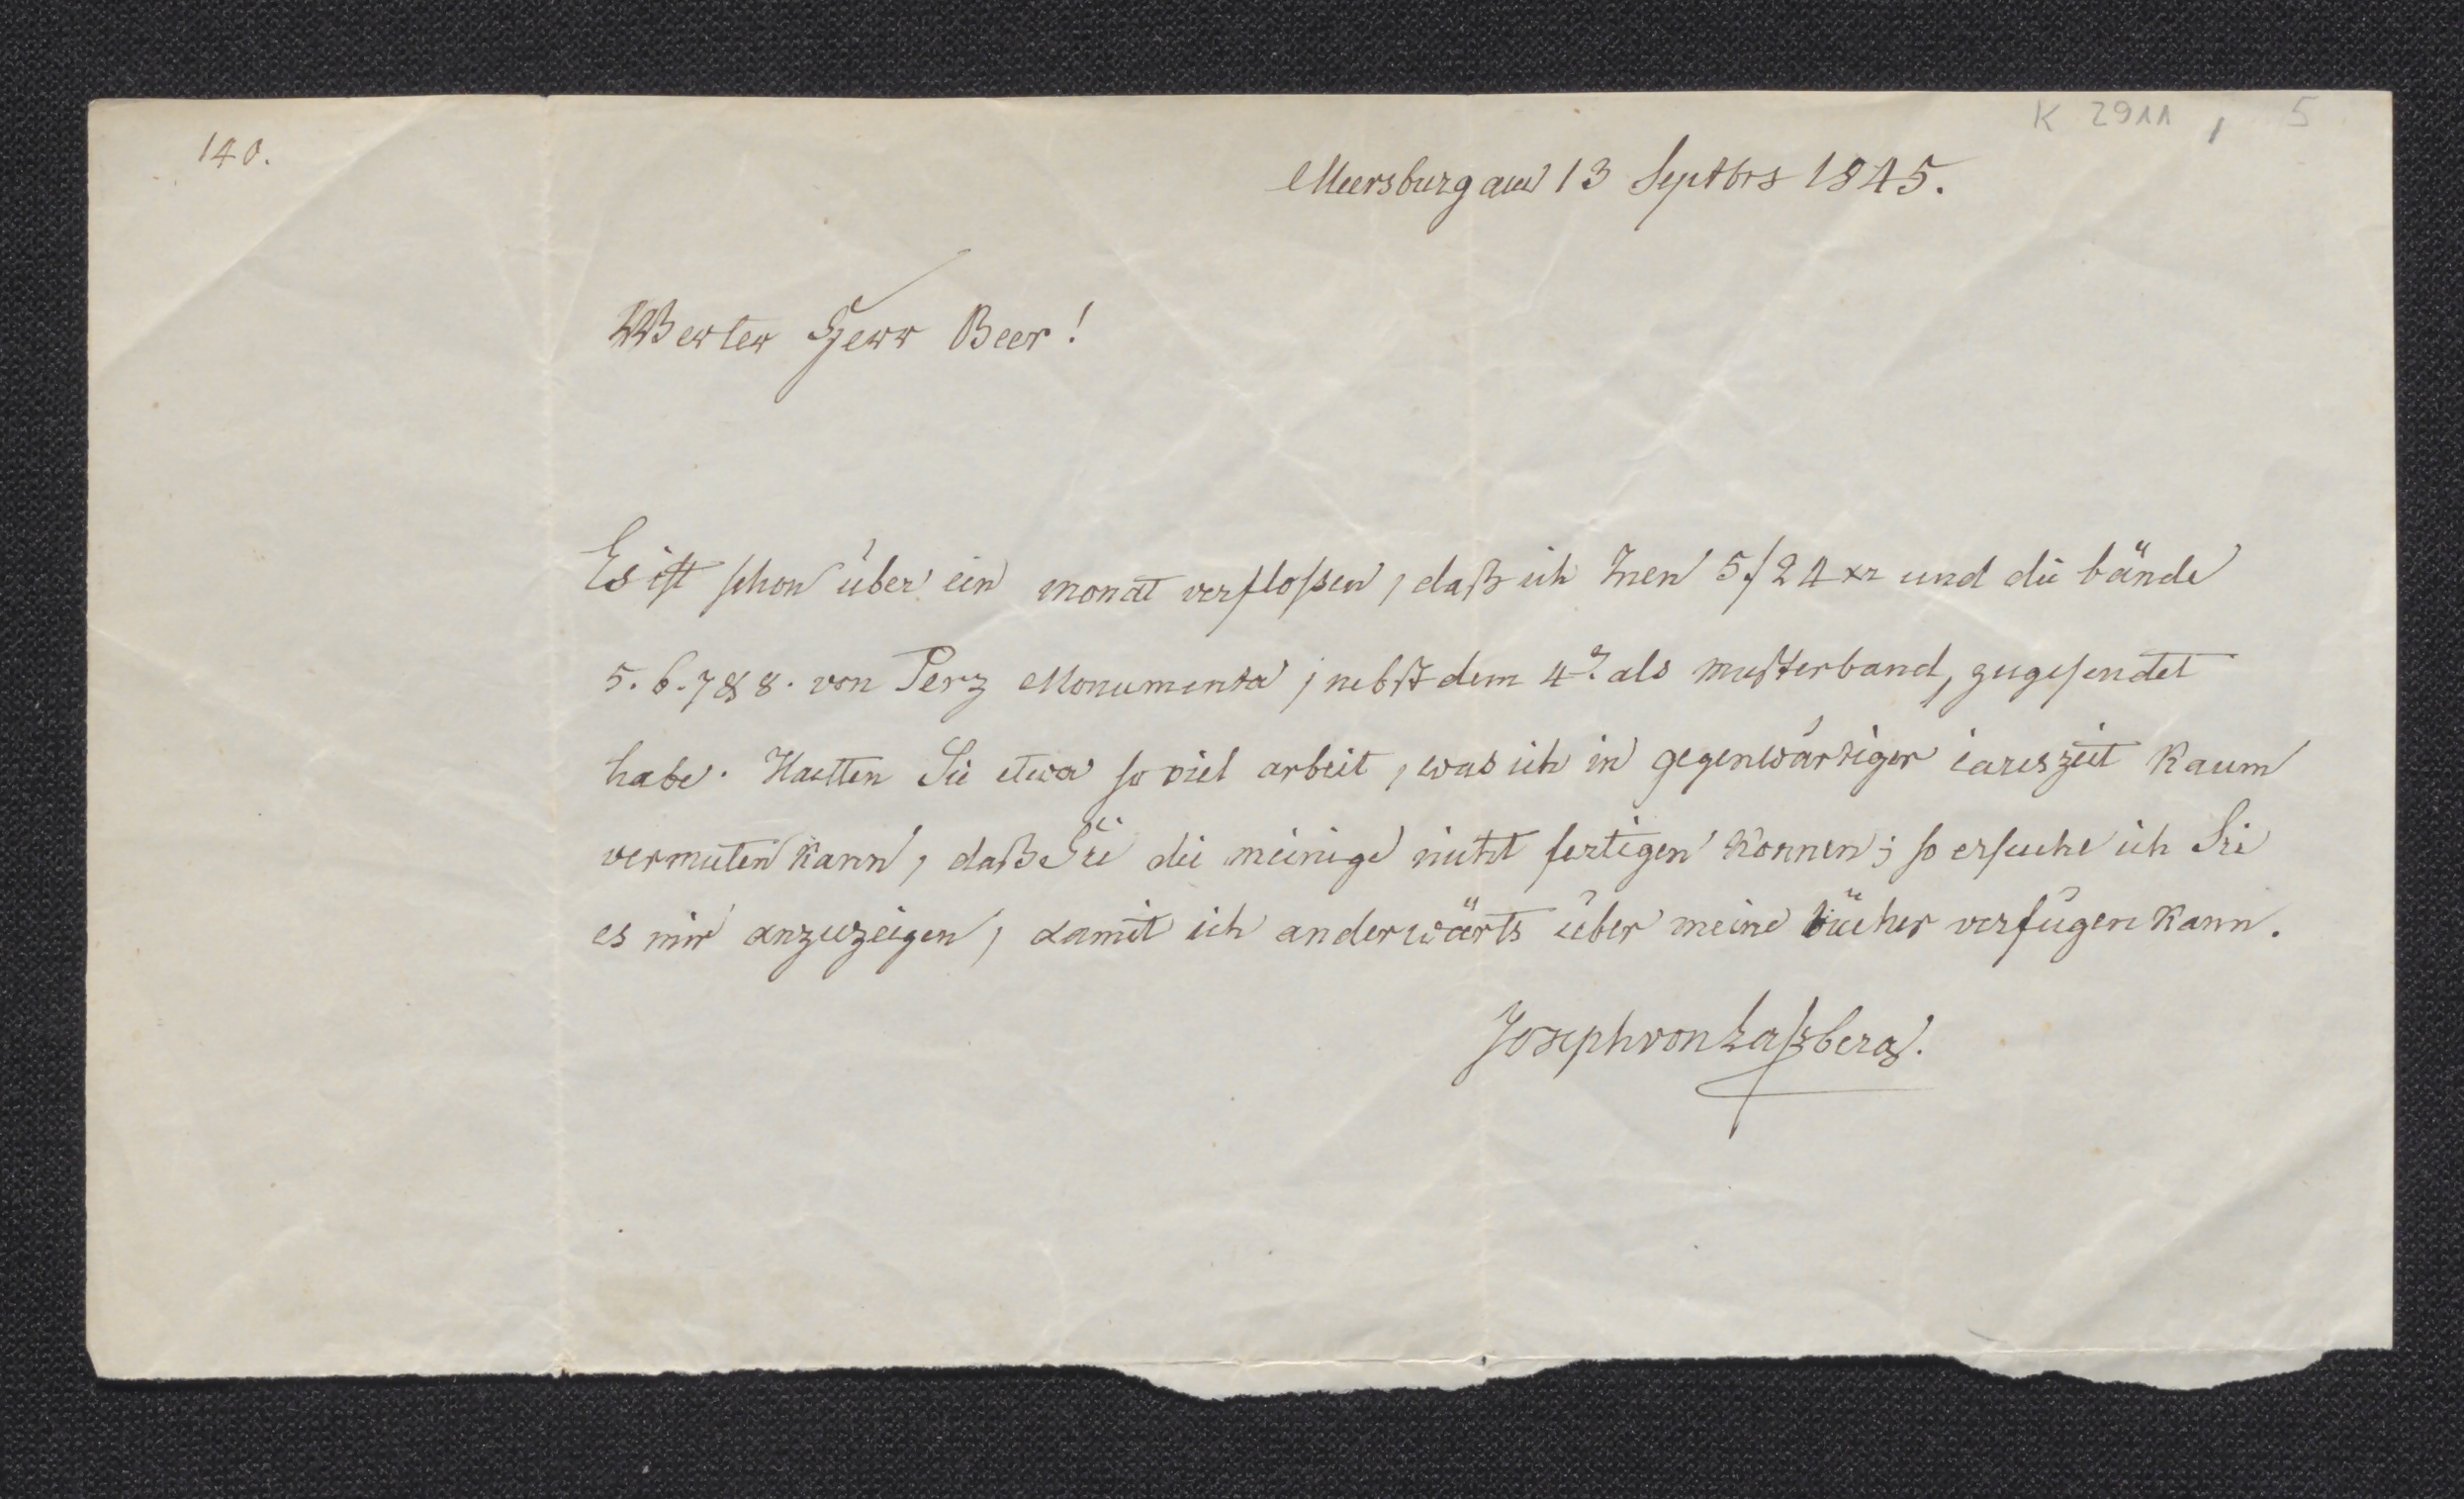 K 2911, 5
140.
Meersburg am 13 Septbrs 1845.
Werter Herr Beer!
Es ist schon über ein monat verfloßen, daß ich Inen 5f 24 xr und die bände
5. 6. 7 & 8. von Perz Monumenta, nebst dem 4ͭ. als musterband, zugesendet
habe. Haetten Sie etwa so viel arbeit, was ich in gegenwärtiger iareszeit kaum
vermuten kann, daß Sie die meinige nicht fertigen können; so ersuche ich Sie
es mir anzuzeigen, damit ich anderwärts über meine bücher verfügen kann.
Joseph von Laßberg.